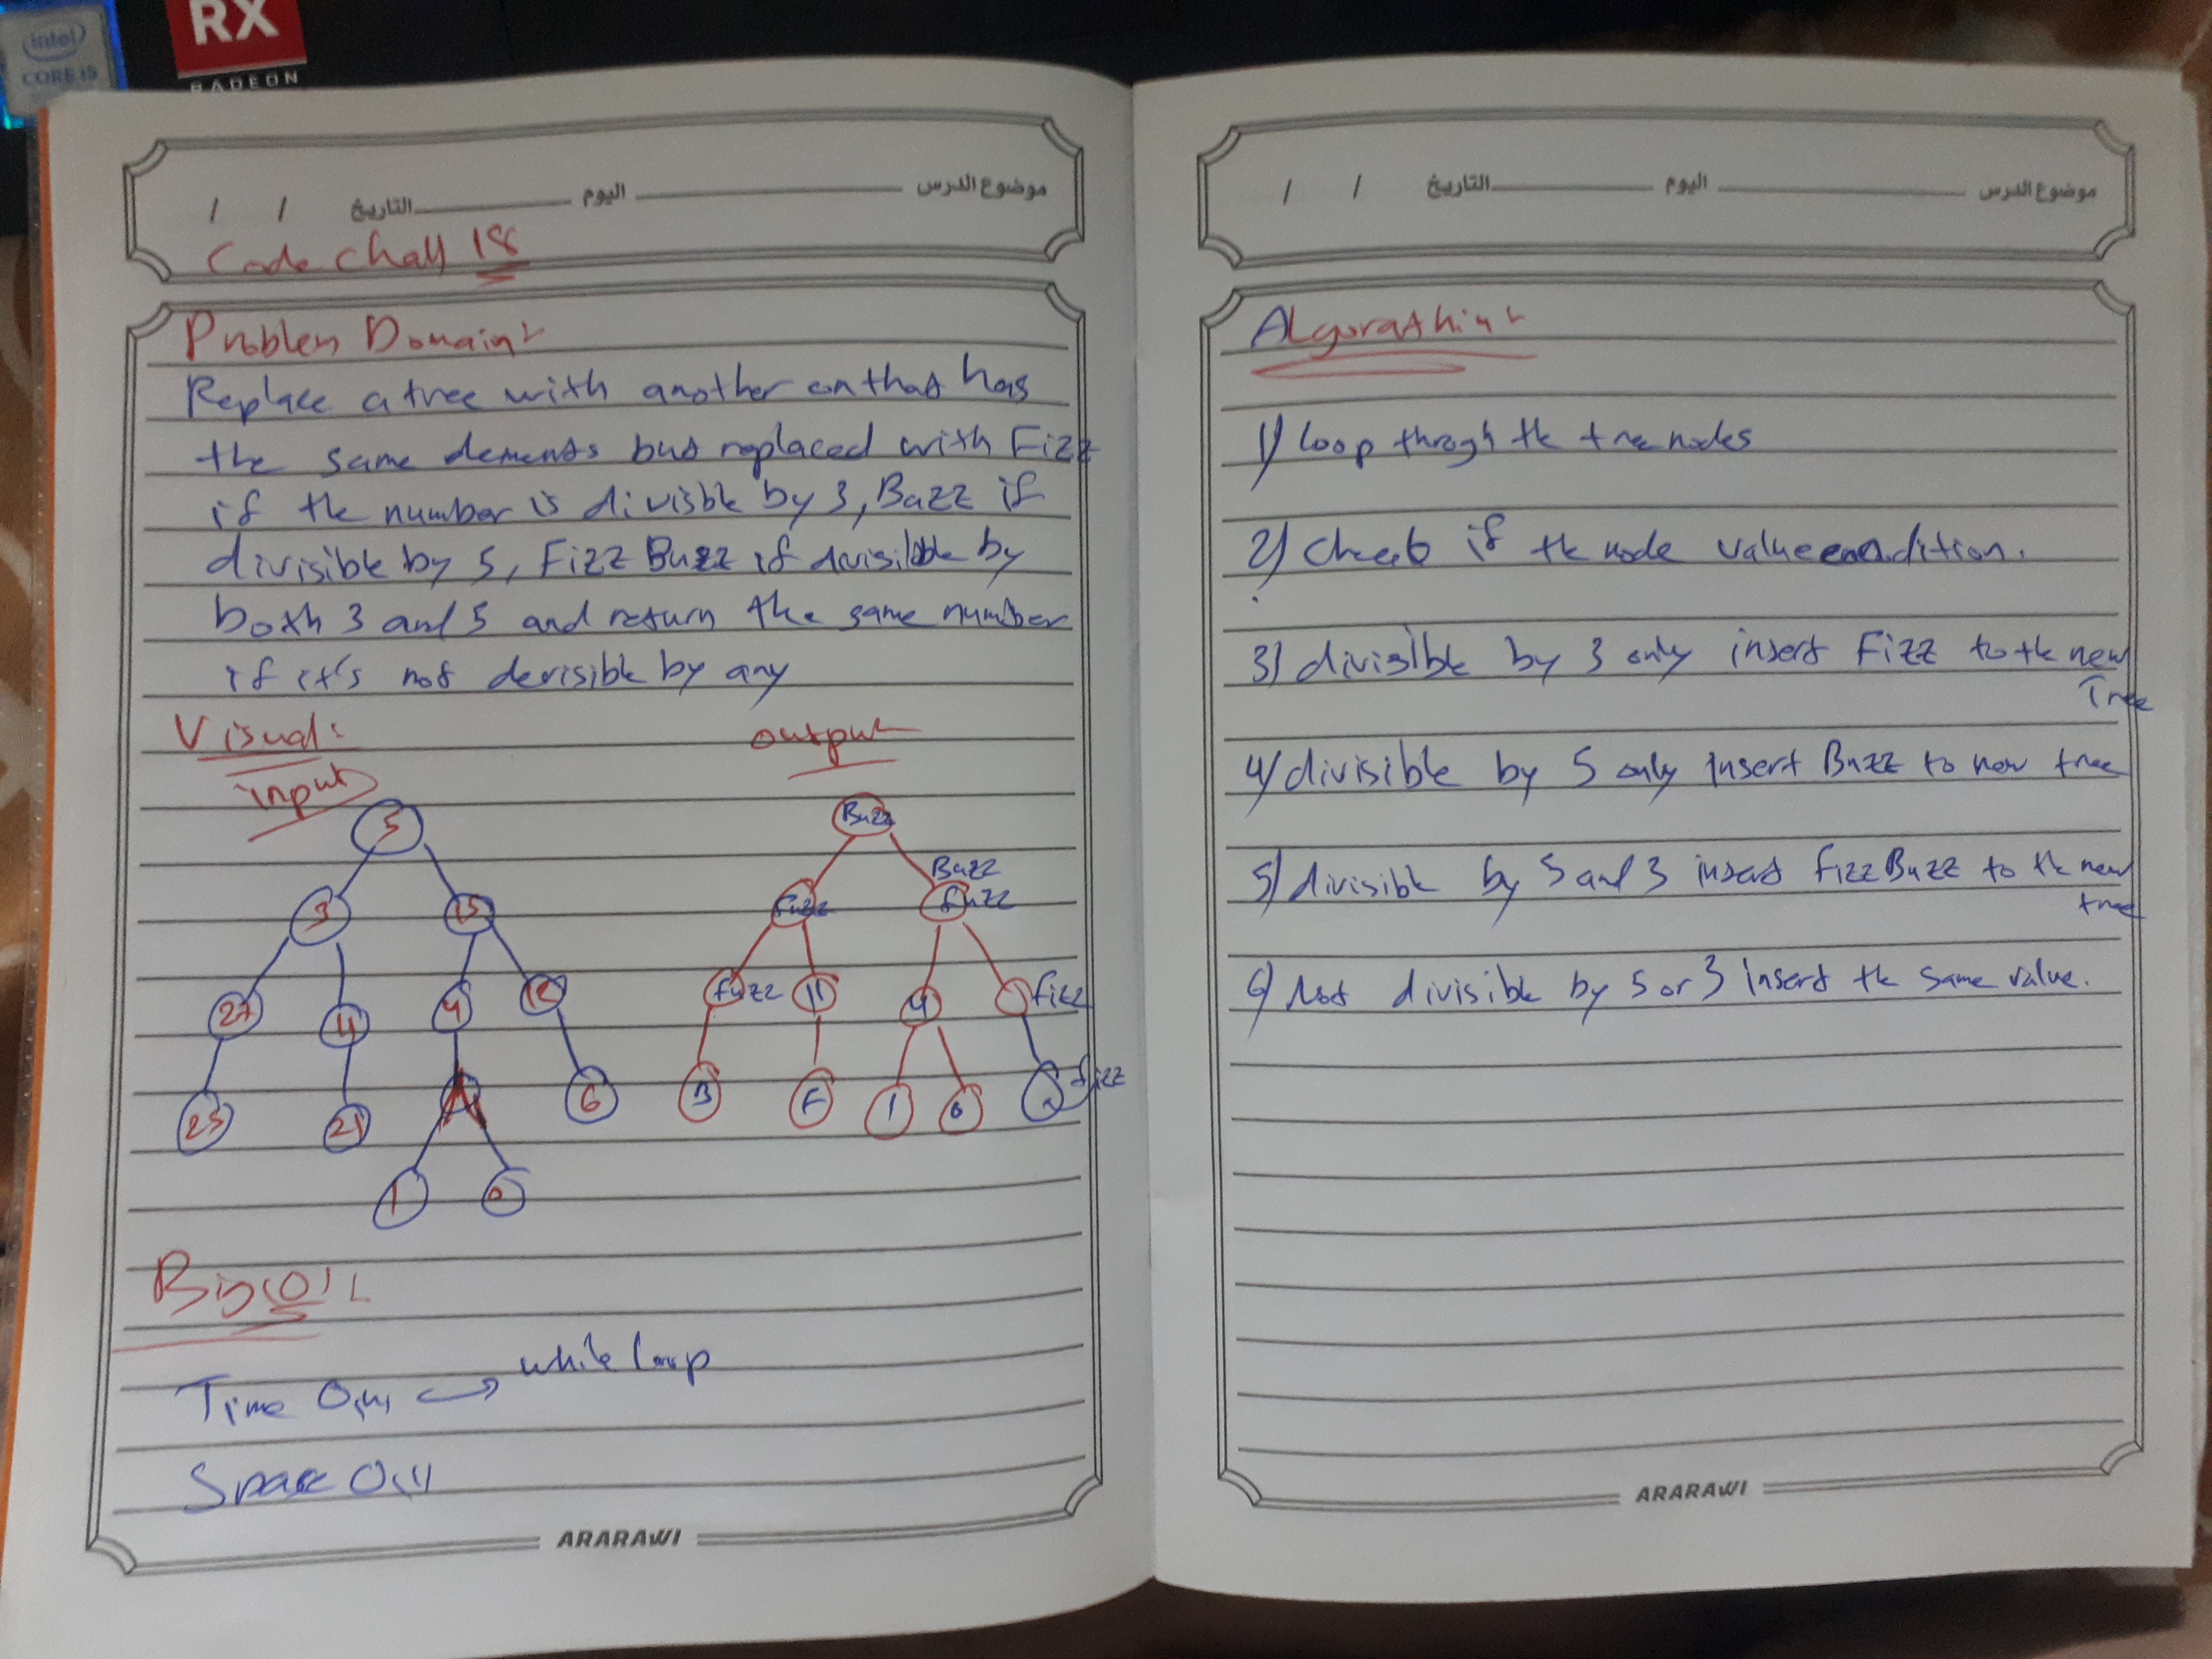 intel
CORE i5
RX
RADEON
موضوع الدرس اليوم التاريخ / /
Code Chall 18
Problem Domain
Replace a tree with another on that has
the same elements but replaced with Fizz
if the number is divisble by 3, Buzz if
divisible by 5, Fizz Buzz if divisible by
both 3 and 5 and return the same number
if it's not devisible by any
Visual:
input
5
3
15
27
11
4
12
25
21
6
1
output
Buzz
fuzz
Buzz
fuzz
fuzz
11
4
fizz
B
F
1
fizz
Big(O)
Time O(n) → while loop
Space O(1)
ARARAWI
موضوع الدرس اليوم التاريخ / /
Algorathim
1) loop throgh the tree nodes
2) Check if the node value condition.
3) divisible by 3 only insert Fizz to the new
Tree
4) divisible by 5 only insert Buzz to new tree
5) divisible by 5 and 3 insert FizzBuzz to the new
tree
6) Not divisible by 5 or 3 insert the same value.
ARARAWI